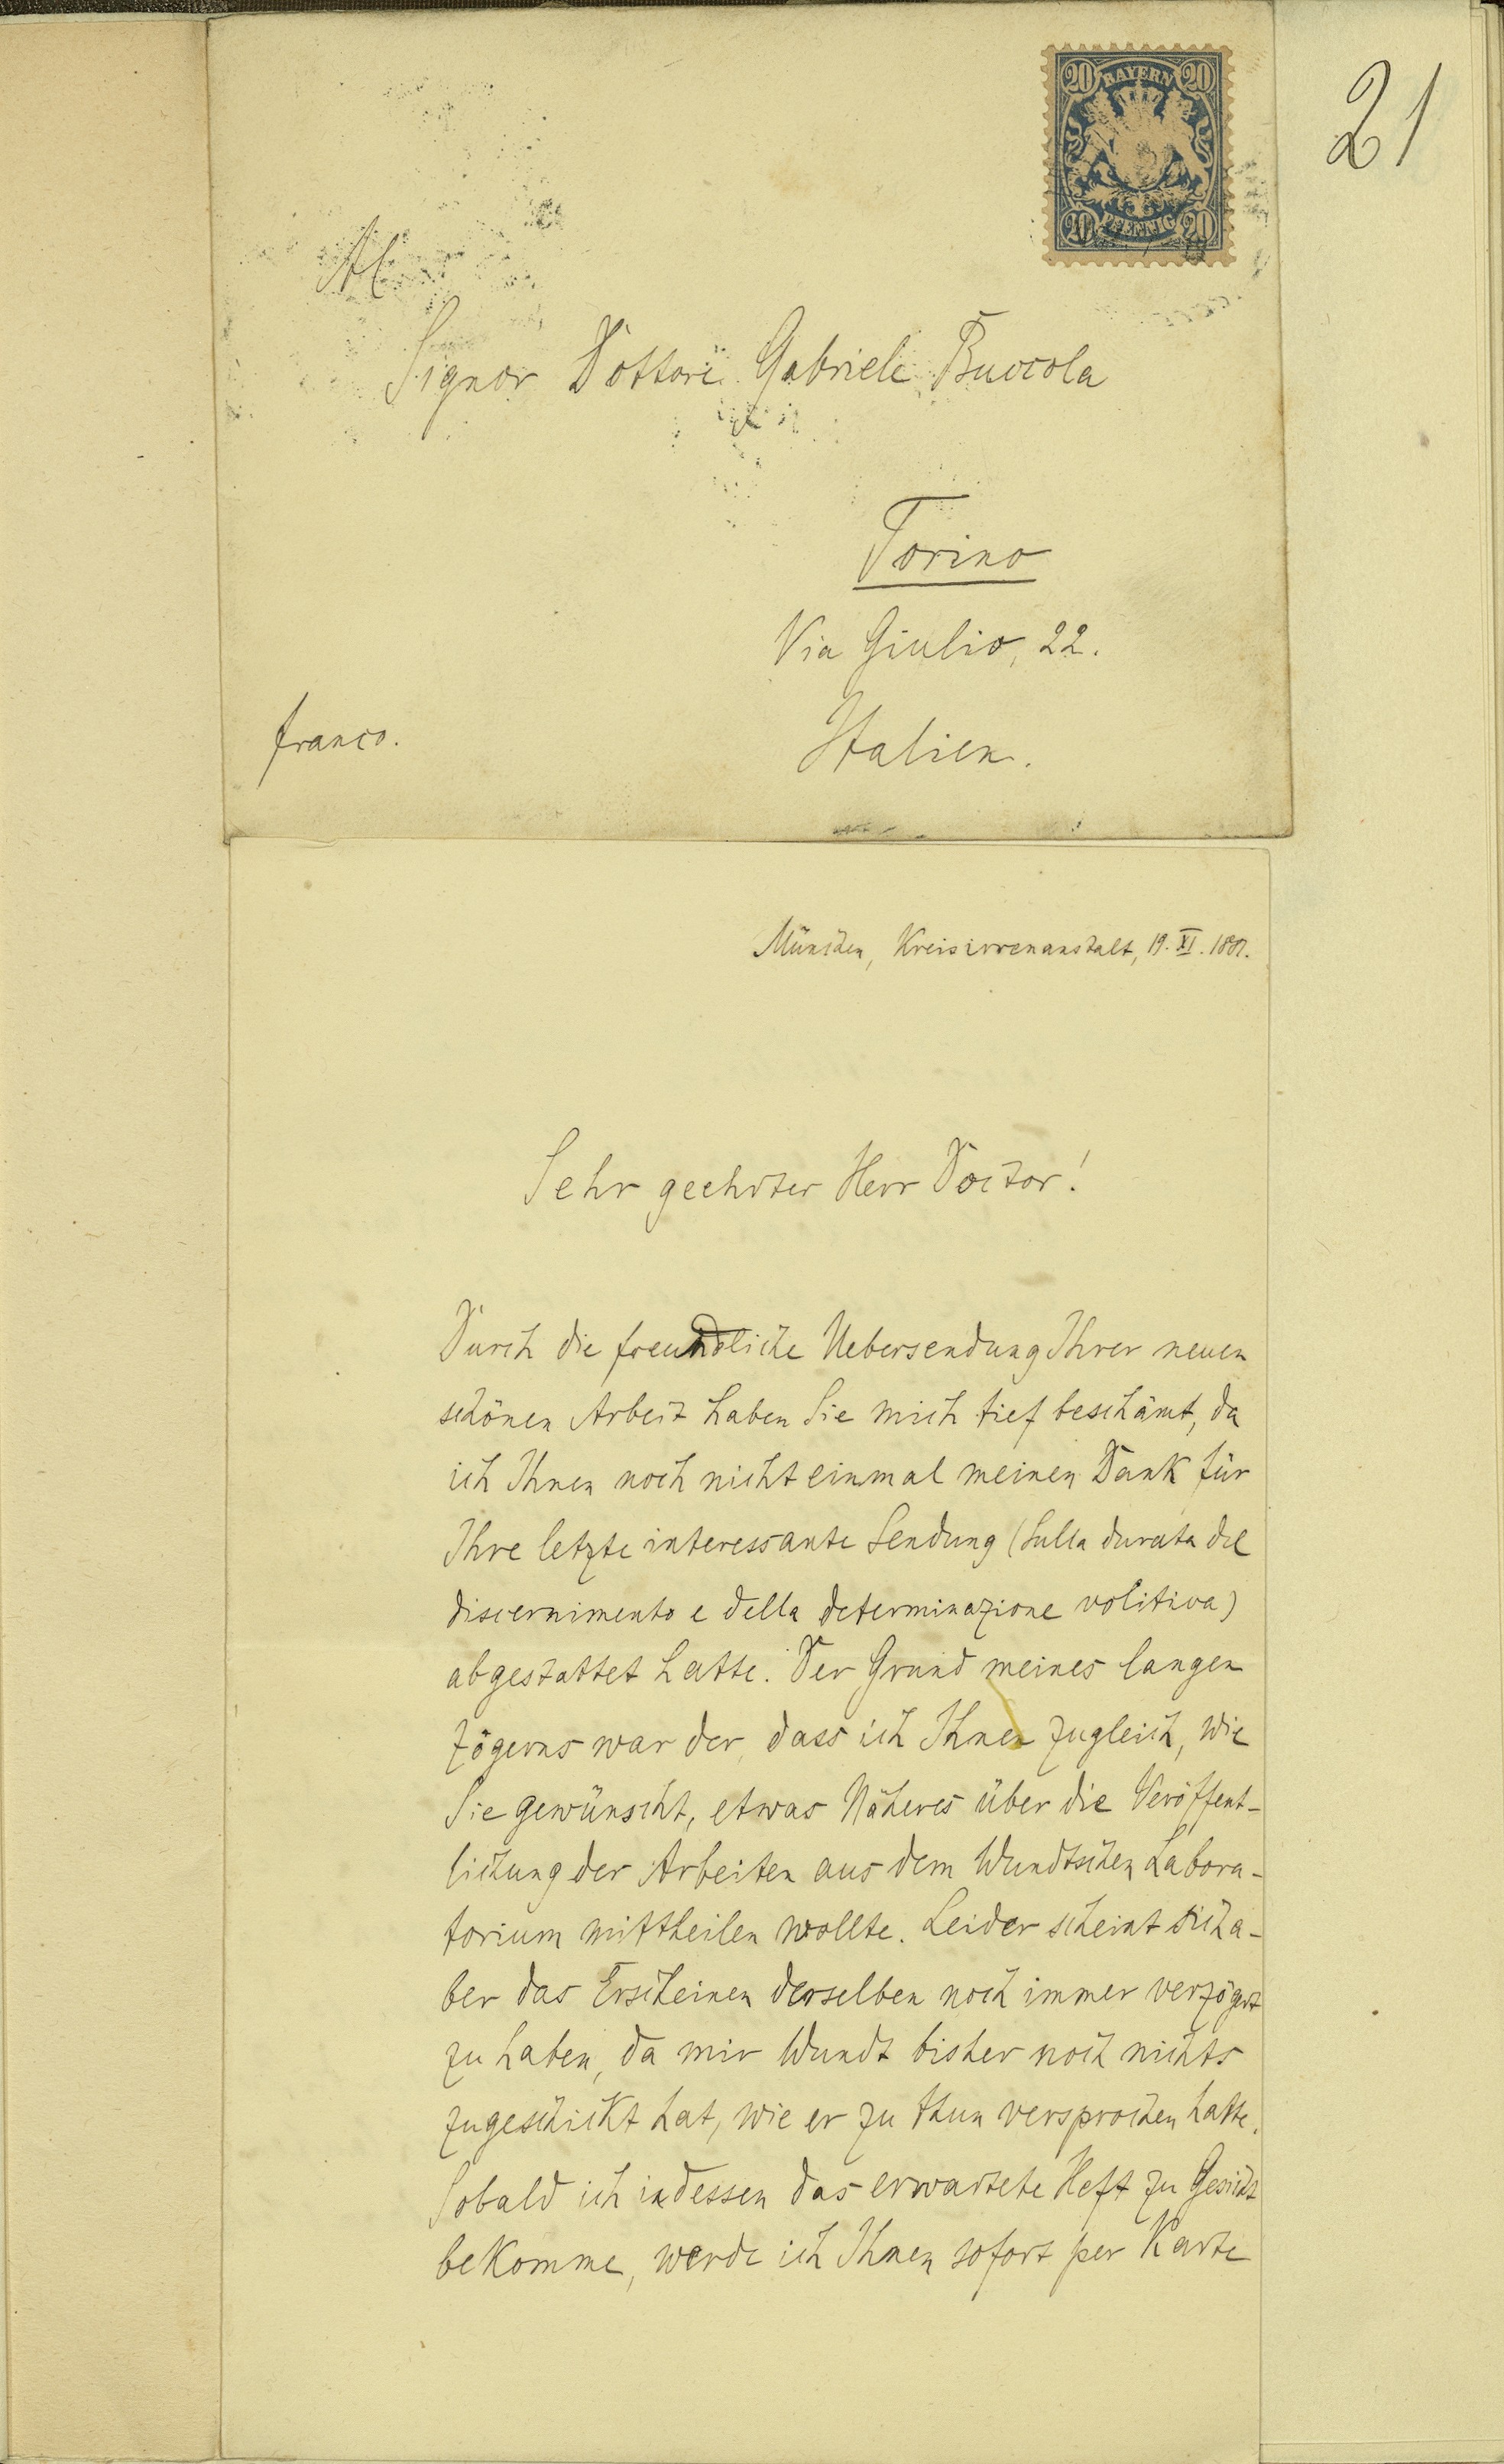 21
20 BAYERN 20
20 PFENNIG 20
Al
Signor Dottore Gabriele Buccola
Torino
Via Giulio, 22.
franco.
Italien.
München, Kreisirrenanstalt, 19. XI. 1881.
Sehr geehrter Herr Doctor!
Durch die freundliche Uebersendung Ihrer neuen
schönen Arbeit haben Sie mich tief beschämt, da
ich Ihnen noch nicht einmal meinen Dank für
Ihre letzte interessante Sendung (Sulla durata del
discernimento e della determinazione volitiva)
abgestattet hatte. Der Grund meines langen
Zögerns war der, dass ich Ihnen zugleich, wie
Sie gewünscht, etwas Näheres über die Veröffent-
lichung der Arbeiten aus dem Wundtschen Labora-
torium mittheilen wollte. Leider scheint sich a-
ber das Erscheinen derselben noch immer verzögert
zu haben, da mir Wundt bisher noch nichts
zugeschickt hat, wie er zu thun versprochen hatte.
Sobald ich indessen das erwartete Heft zu Gesicht
bekomme, werde ich Ihnen sofort per Karte